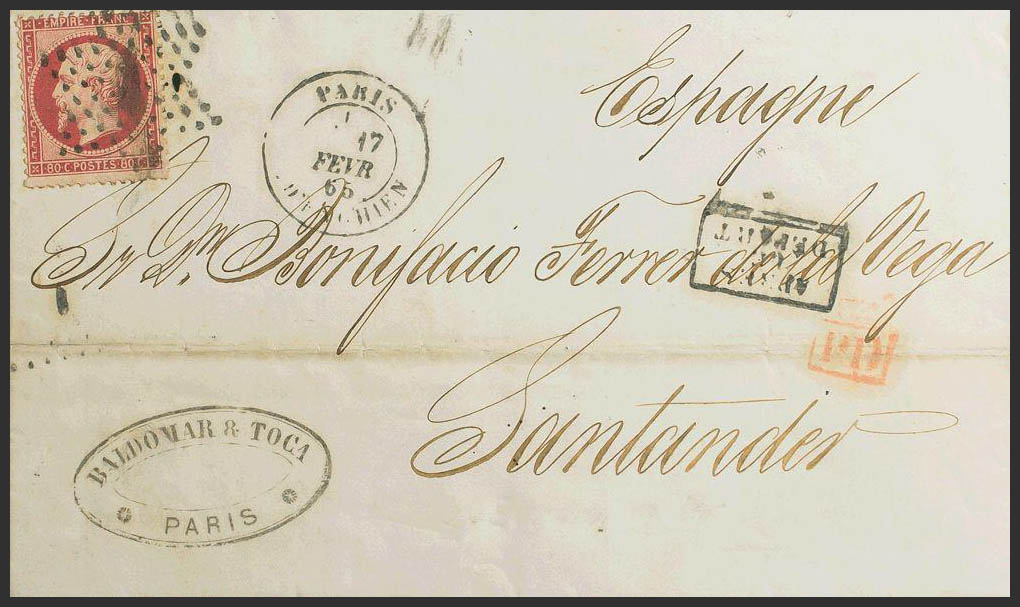 EMPIRE FRANC
80 C POSTES 80 C
PARIS
17
FEVR
65
D'ENGHIEN
Espagne
Sr Dn Bonifacio Ferrer de la Vega
DEPART
P.D.
Santander
BALDOMAR & TOCA
PARIS